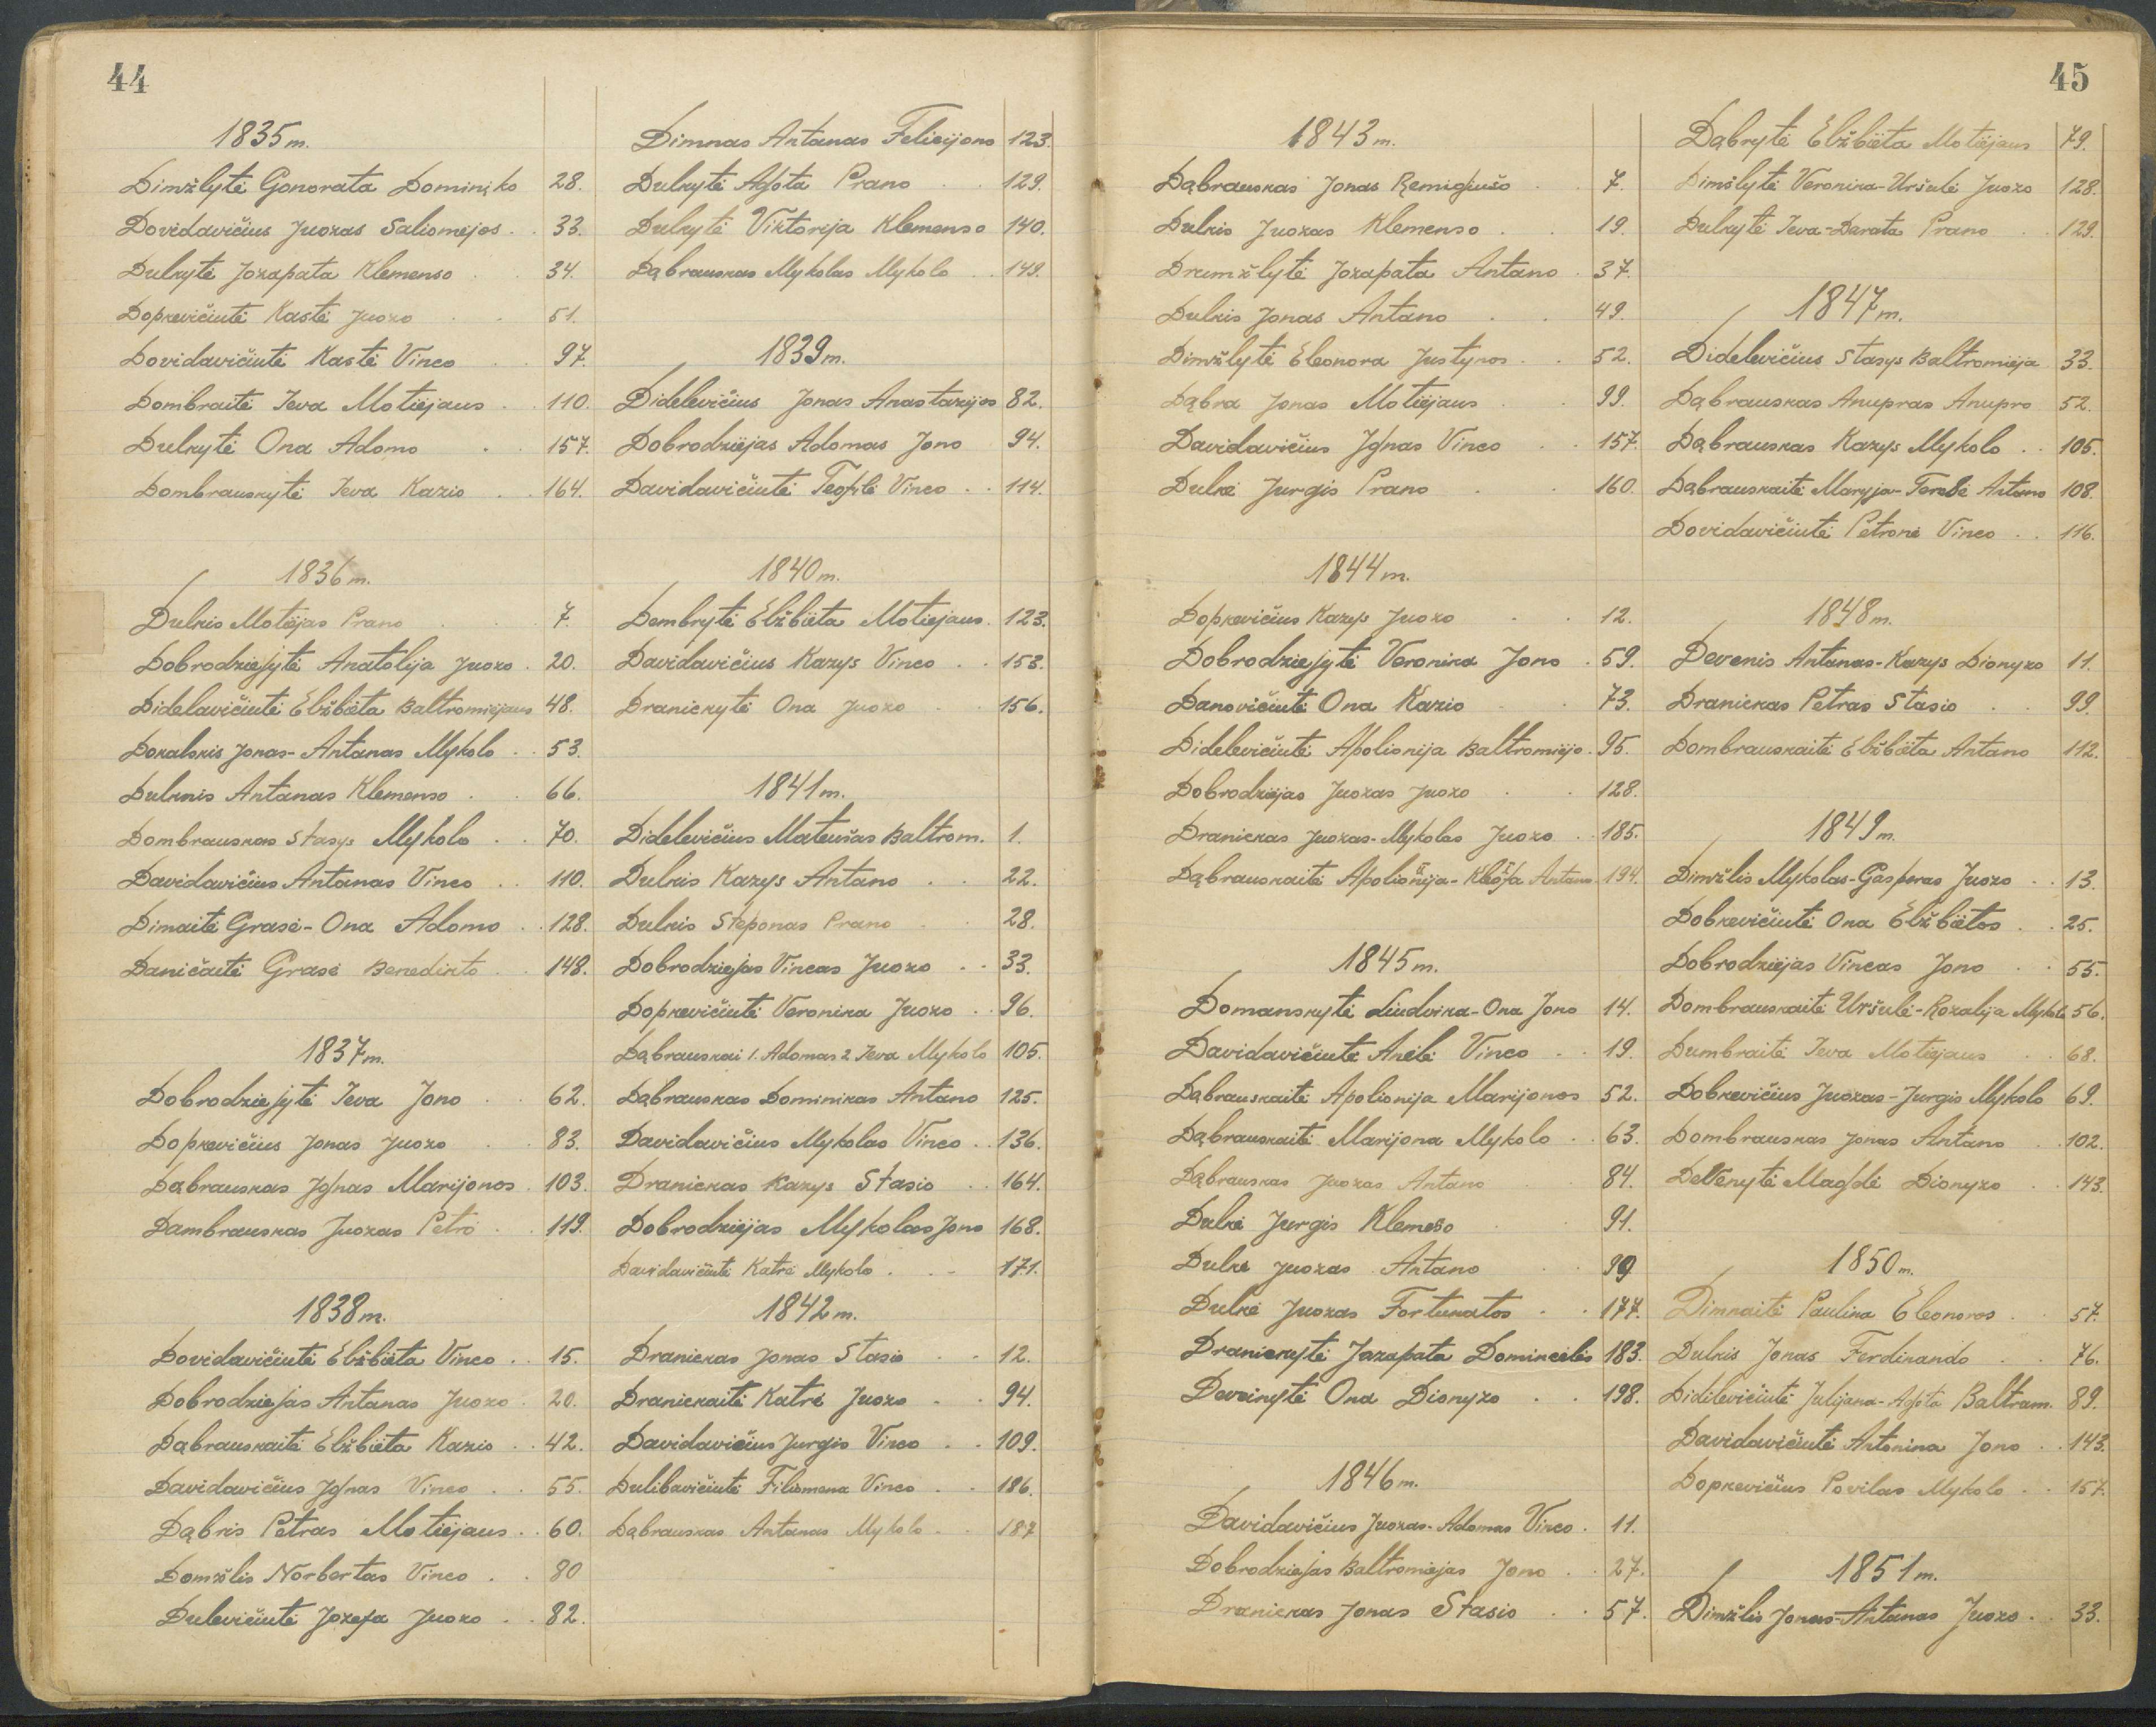 44
1835 m.
Dimžlytė Gonorata Dominįko 28.
Dovidavičius Juozas Saliomėjos . . 33.
Dulkytė Jozapata Klemenso . 34.
Dopkevičiutė Kastė Juozo . . 51.
Dovidavičiutė Kastė Vinco . . 97.
Dombraitė Ieva Motiejaus . . 110.
Dulkytė Ona Adomo . . 157.
Dombrauskytė Ieva Kazio . . 164.
1836 m.
Dulkis Motiejas Prano . . . 7.
Dobrodziejytė Anatolija Juozo . 20.
Didelavičiutė Elžbieta Baltromiejaus 48.
Dokalskis Jonas-Antanas Mykolo . . 53.
Dulknis Antanas Klemenso . . 66.
Dombrauskas Stasys Mykolo . . 70.
Davidavičius Antanas Vinco . . 110.
Dimaitė Grasė-Ona Adomo . . 128.
Daničaitė Grasė Benedikto . . 148.
1837 m.
Dobrodziejytė Ieva Jono . . 62.
Dopkevičius Jonas Juozo . . 83.
Dąbrauskas Ignas Marijonos . 103.
Dambrauskas Juozas Petro . . 119.
1838 m.
Dovidavičiutė Elžbieta Vinco . . 15.
Dobrodziejas Antanas Juozo . 20.
Dąbrauskaitė Elžbieta Kazio . . 42.
Davidavičius Ignas Vinco . . 55.
Dąbris Petras Motiejaus . . 60.
Domžlis Norbertas Vinco . . 80
Dulevičiutė Jozefa Juozo . . 82.
Dimnas Antanas Felicijono 123.
Dulkytė Agota Prano . . 129.
Dulkytė Viktorija Klemenso 140.
Dąbrauskas Mykolas Mykolo . . 149.
1839 m.
Didelevičius Jonas Anastazijos 82.
Dobrodziejas Adomas Jono 94.
Davidavičiutė Teofilė Vinco . . 114.
1840 m.
Dombrytė Elžbieta Motiejaus . 123.
Davidavičius Kazys Vinco . . 153.
Dranickytė Ona Juozo . . 156.
1841 m.
Didelevičius Mateušas Baltrom. 1.
Dulkis Kazys Antano . . 22.
Dulkis Steponas Prano . 28.
Dobrodziejas Vincas Juozo . . 33.
Dopkevičiutė Veronika Juozo . . 96.
Dąbrauskai 1. Adomas 2 Ieva Mykolo 105.
Dąbrauskas Dominikas Antano 125.
Davidavičius Mykolas Vinco . . 136.
Dranickas Kazys Stasio . . 164.
Dobrodziejas Mykolas Jono 168.
Davidavičiutė Katrė Mykolo . . - 171.
1842 m.
Dranickas Jonas Stasio . . 12.
Dranickaitė Katrė Juozo . . 94.
Davidavičius Jurgis Vinco . . 109.
Dulibavičiutė Filiomena Vinco . . 186.
Dąbrauskas Antanas Mykolo . . 187
45
1843 m.
Dąbrauskas Jonas Remigiušo . . 7.
Dulkis Juozas Klemenso . . 19.
Drumžlytė Jozapata Antano . 37.
Dulkis Jonas Antano . . 49.
Dimžlytė Eleonora Justynos . . 52.
Dąbra Jonas Motiejaus . . 99.
Davidavičius Ignas Vinco . . 157.
Dulkė Jurgis Prano . . 160.
1844 m.
Dopkevičius Kazys Juozo . . 12.
Dobrodziejytė Veronika Jono . 59.
Danovičiutė Ona Kazio . . 73.
Didelevičiutė Apolionija Baltromiejo . 95.
Dobrodziejas Juozas Juozo . . 128.
Dranickas Juozas-Mykolas Juozo . . 185.
Dąbrauskaitė Apolionija-Kleofa Antano 194.
1845 m.
Domanskytė Liudvika-Ona Jono 14.
Davidavičiutė Anėlė Vinco . . 19.
Dąbrauskaitė Apolionija Marijonos 52.
Dąbrauskaitė Marijona Mykolo . . 63.
Dąbrauskas Juozas Antano . 84.
Dulkė Jurgis Klemeso . 91.
Dulkė Juozas Antano . . 99
Dulkė Juozas Fortunatos . . 177.
Dranickytė Jozapata Domincėlės 183.
Deveinytė Ona Dionyzo . . 198.
1846 m.
Davidavičius Juozas-Adomas Vinco . 11.
Dobrodziejas Baltromiejas Jono . . 27.
Dranickas Jonas Stasio . . 57.
Dąbrytė Elžbieta Motiejaus 79.
Dimžlytė Veronika-Uršulė Juozo 128.
Dulkytė Ieva-Darata Prano . . 129.
1847 m.
Didelevičius Stasys Baltromieja 33.
Dąbrauskas Anupras Anupro 52.
Dąbrauskas Kazys Mykolo . . 105.
Dąbrauskaitė Maryja-Teresė Antano 108.
Dovidavičiutė Petronė Vinco . . 116.
1848 m.
Devenis Antanas-Kazys Dionyzo 11.
Dranickas Petras Stasio . . 99.
Dombrauskaitė Elžbieta Antano 112.
1849 m.
Dimžlis Mykolas-Gasparas Juozo . . 13.
Dobkevičiutė Ona Elžbietos . . 25.
Dobrodziejas Vincas Jono . . 55.
Dombrauskaitė Uršulė-Rozalija Mykolo 56.
Dumbraitė Ieva Motiejaus . . 68.
Dobkevičius Juozas-Jurgis Mykolo 69.
Dombrauskas Jonas Antano . . 102.
Devenytė Magdė Dionyzo . . 143.
1850 m.
Dimnaitė Paulina Eleonoros . . 57.
Dulkis Jonas Ferdinando . . 76.
Didelevičiutė Julijana-Agota Baltram. 89.
Davidavičiutė Antonina Jono . . 143.
Dopkevičius Povilas Mykolo . . 157.
1851 m.
Dimžlis Jonas-Antanas Juozo . . 33.